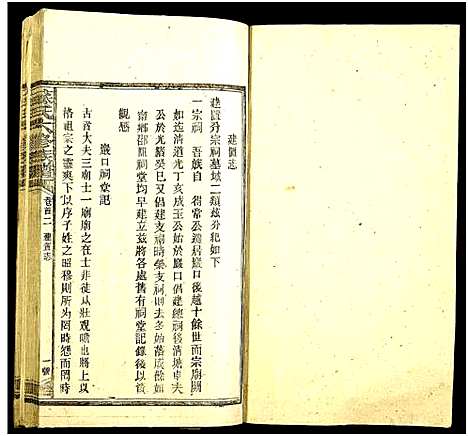 建置志
建置分宗祠墓域二類茲分紀如下
一宗祠 吾族自 得常公遷居巖口後越十餘世而宗廟闕
如迄清道光丁亥成玉公始於巖口倡建宗祠其後清塘車夫
公於光緒癸巳又倡建支祠時榮支祠則先落成餘如
南鄉邵陽祠堂均早建立茲將各處舊有祠堂記錄後以資
觀感
巖口祠堂記
古者大夫三廟士一廟廟之在士非徒以壯觀瞻也將上以
格祖宗之靈爽下以序子姓之昭穆則所為罔時怨而罔時
六修族譜
卷首二 建置志
一號